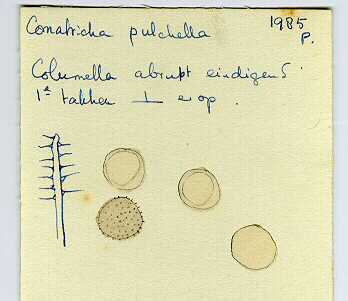 Comatricha pulchella
1985
P.
Columella abrupt eindigend
1e takken ⊥ erop.